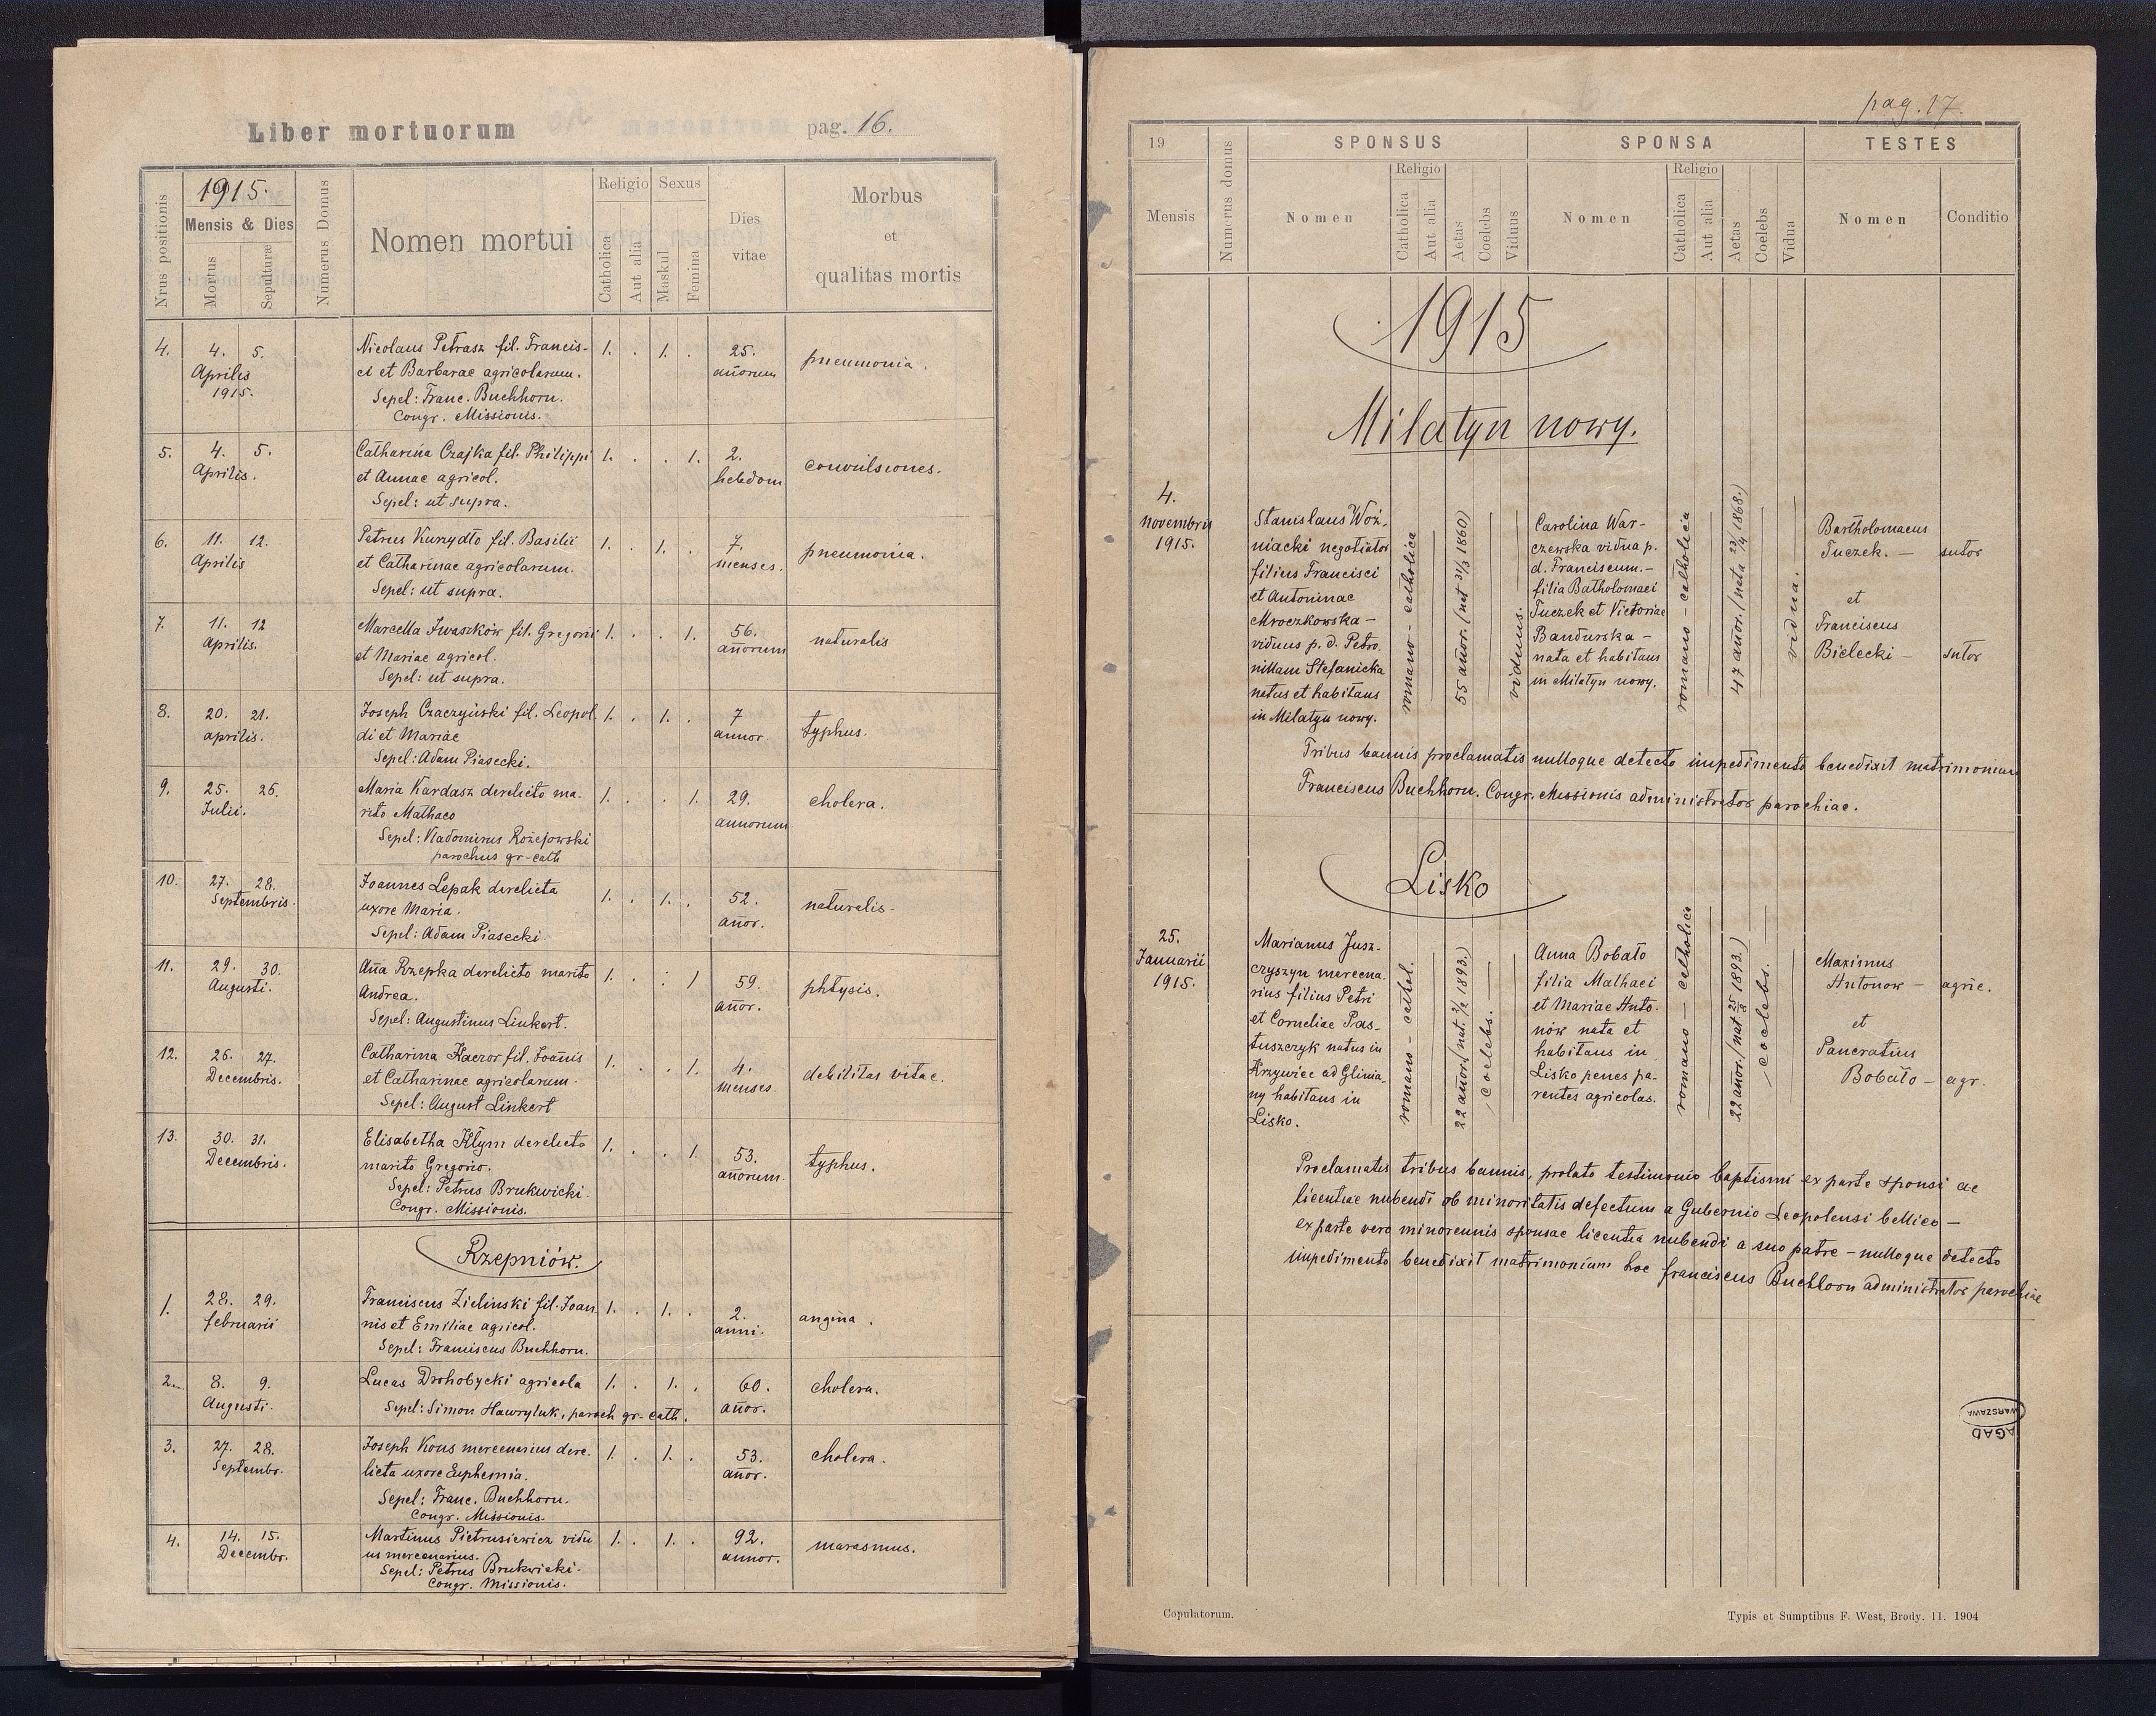 Liber mortuorum pag. 16.
Nrus positionis
1915.
Mensis & Dies
Mortus
Sepulturæ
Numerus Domus
Nomen mortui
Religio
Catholica
Aut alia
Sexus
Maskul
Femina
Dies
vitae
Morbus
et
qualitas mortis
4. 4. 5. Nicolaus Petrasz fil. Francis- 1. . 1. . 25. pneumonia.
Aprilis ci et Barbarae agricolarum. añorum
1915. Sepel: Franc. Buchhorn.
Congr. Missionis.
5. 4. 5. Catharina Czajka fil. Philippi 1. . . 1. 2. convulsiones.
Aprilis. et Annae agricol. hebdom
Sepel: ut supra.
6. 11. 12. Petrus Kurzydło fil. Basilii 1. . 1. . 7. pneumonia.
Aprilis et Catharinae agricolarum. menses.
Sepel: ut supra.
7. 11. 12 Marcella Iwaszków fil. Gregorii 1. . . 1. 56. naturalis
Aprilis. et Mariae agricol. añorum
Sepel: ut supra.
8. 20. 21. Joseph Czaczyński fil. Leopol 1. . 1. . 7 typhus.
aprilis. di et Mariae annor.
Sepel: Adam Piasecki.
9. 25. 26. Maria Kardasz derelicto ma- 1. . . 1. 29. cholera.
Julii. rito Mathaeo annorum
Sepel: Vladomirus Rożejowski
parochus gr-cath
10. 27. 28. Joannes Lepak derelicta 1. . 1. . 52. naturalis-
Septembris. uxore Maria. añor.
Sepel: Adam Piasecki.
11. 29. 30. Aña Rzepka derelicto marito 1. . : 1 59. phtysis.
Augusti. Andrea. añor.
Sepel: Augustinus Linkert.
12. 26. 27. Catharina Kaczor fil. Joañis 1. . . 1. 4. debilitas vitae.
Decembris. et Catharinae agricolarum. menses.
Sepel: August Linkert
13. 30. 31. Elisabetha Kłym derelicto 1. . . 1. 53. typhus.
Decembris. marito Gregorio. añorum.
Sepel: Petrus Brukwicki.
Congr. Missionis.
Rzepniów.
1. 28. 29. Franciscus Zielinski fil. Joan 1. . 1. . 2. angina.
februarii nis et Emiliae agricol. anni.
Sepel: Franciscus Buchhorn.
2. 8. 9. Lucas Drohobycki agricola 1. . 1. . 60. cholera.
Augusti. Sepel: Simon Hawryluk, paroch gr-cath. añor.
3. 27. 28. Joseph Kous mercenarius dere- 1. . 1. . 53. cholera.
Septembr. licta uxore Euphemia. añor.
Sepel: Franc. Buchhorn.
Congr. Missionis.
4. 14. 15. Martinus Pietrusiewicz vidu 1. . 1. . 92. marasmus.
Decembr. us mercenarius. annor.
Sepel: Petrus Brukwicki.
Congr. Missionis.
pag. 17.
19
Mensis
Numerus domus
SPONSUS
Nomen
Religio
Catholica
Aut alia
Aetas
Coelebs
Viduus
SPONSA
Nomen
Religio
Catholica
Aut alia
Aetas
Coelebs
Vidua
TESTES
Nomen
Conditio
1915
Milatyn nowy.
4.
novembris
1915.
Stanislaus Woź-
niacki negotiator
filius Francisci
et Antoninae
Mroczkowska —
viduus p. d. Petro-
nillam Stefanicka
natus et habitans
in Milatyn nowy.
romano - catholica
55 añor. (nat 31/3 1860)
viduus.
Carolina War-
czewska vidua p.
d. Franciscum. —
filia Batholomaei
Tuczek et Victoriae
Bandurska —
nata et habitans
in Milatyn nowy.
romano - catholica
47 añor. (nata 23/14 1868.)
vidua.
Bartholomaeus
Tuczek. — sutor
et
Franciscus
Bielecki — sutor
Tribus bannis proclamatis nulloque detecto impedimento benedixit matrimonium
Franciscus Buchhorn. Congr. Missionis administrator parochiae.
Lisko
25.
Januarii
1915.
Marianus Jusz-
czyszyn mercena-
rius filius Petri
et Corneliae Pas-
tuszczyk natus in
Krzywice ad Glinia-
ny habitans in
Lisko.
romano - cathol.
22 añor. (nat. 2/2 1893.)
coelebs.
Anna Bobało
filia Mathaei
et Mariae Anto-
nów nata et
habitans in
Lisko penes pa-
rentes agricolas.
romano - catholica
22 añor. (nat. 25/8 1893.)
coelebs.
Maximus
Antonow — agric.
et
Pancratius
Bobało — agr.
Proclamatis tribus bannis, prolato testimonio baptismi ex parte sponsi ac
licentiae nubendi ob minoritatis defectum a Gubernio Leopolensi bellico —
ex parte vero minorennis sponsae licentia nubendi a suo patre - nulloque detecto
impedimento benedixit matrimonium hoc Franciscus Buchhorn administrator parochiae
AGAD
WARSZAWA
Copulatorum.
Typis et Sumptibus F. West, Brody. 11. 1904